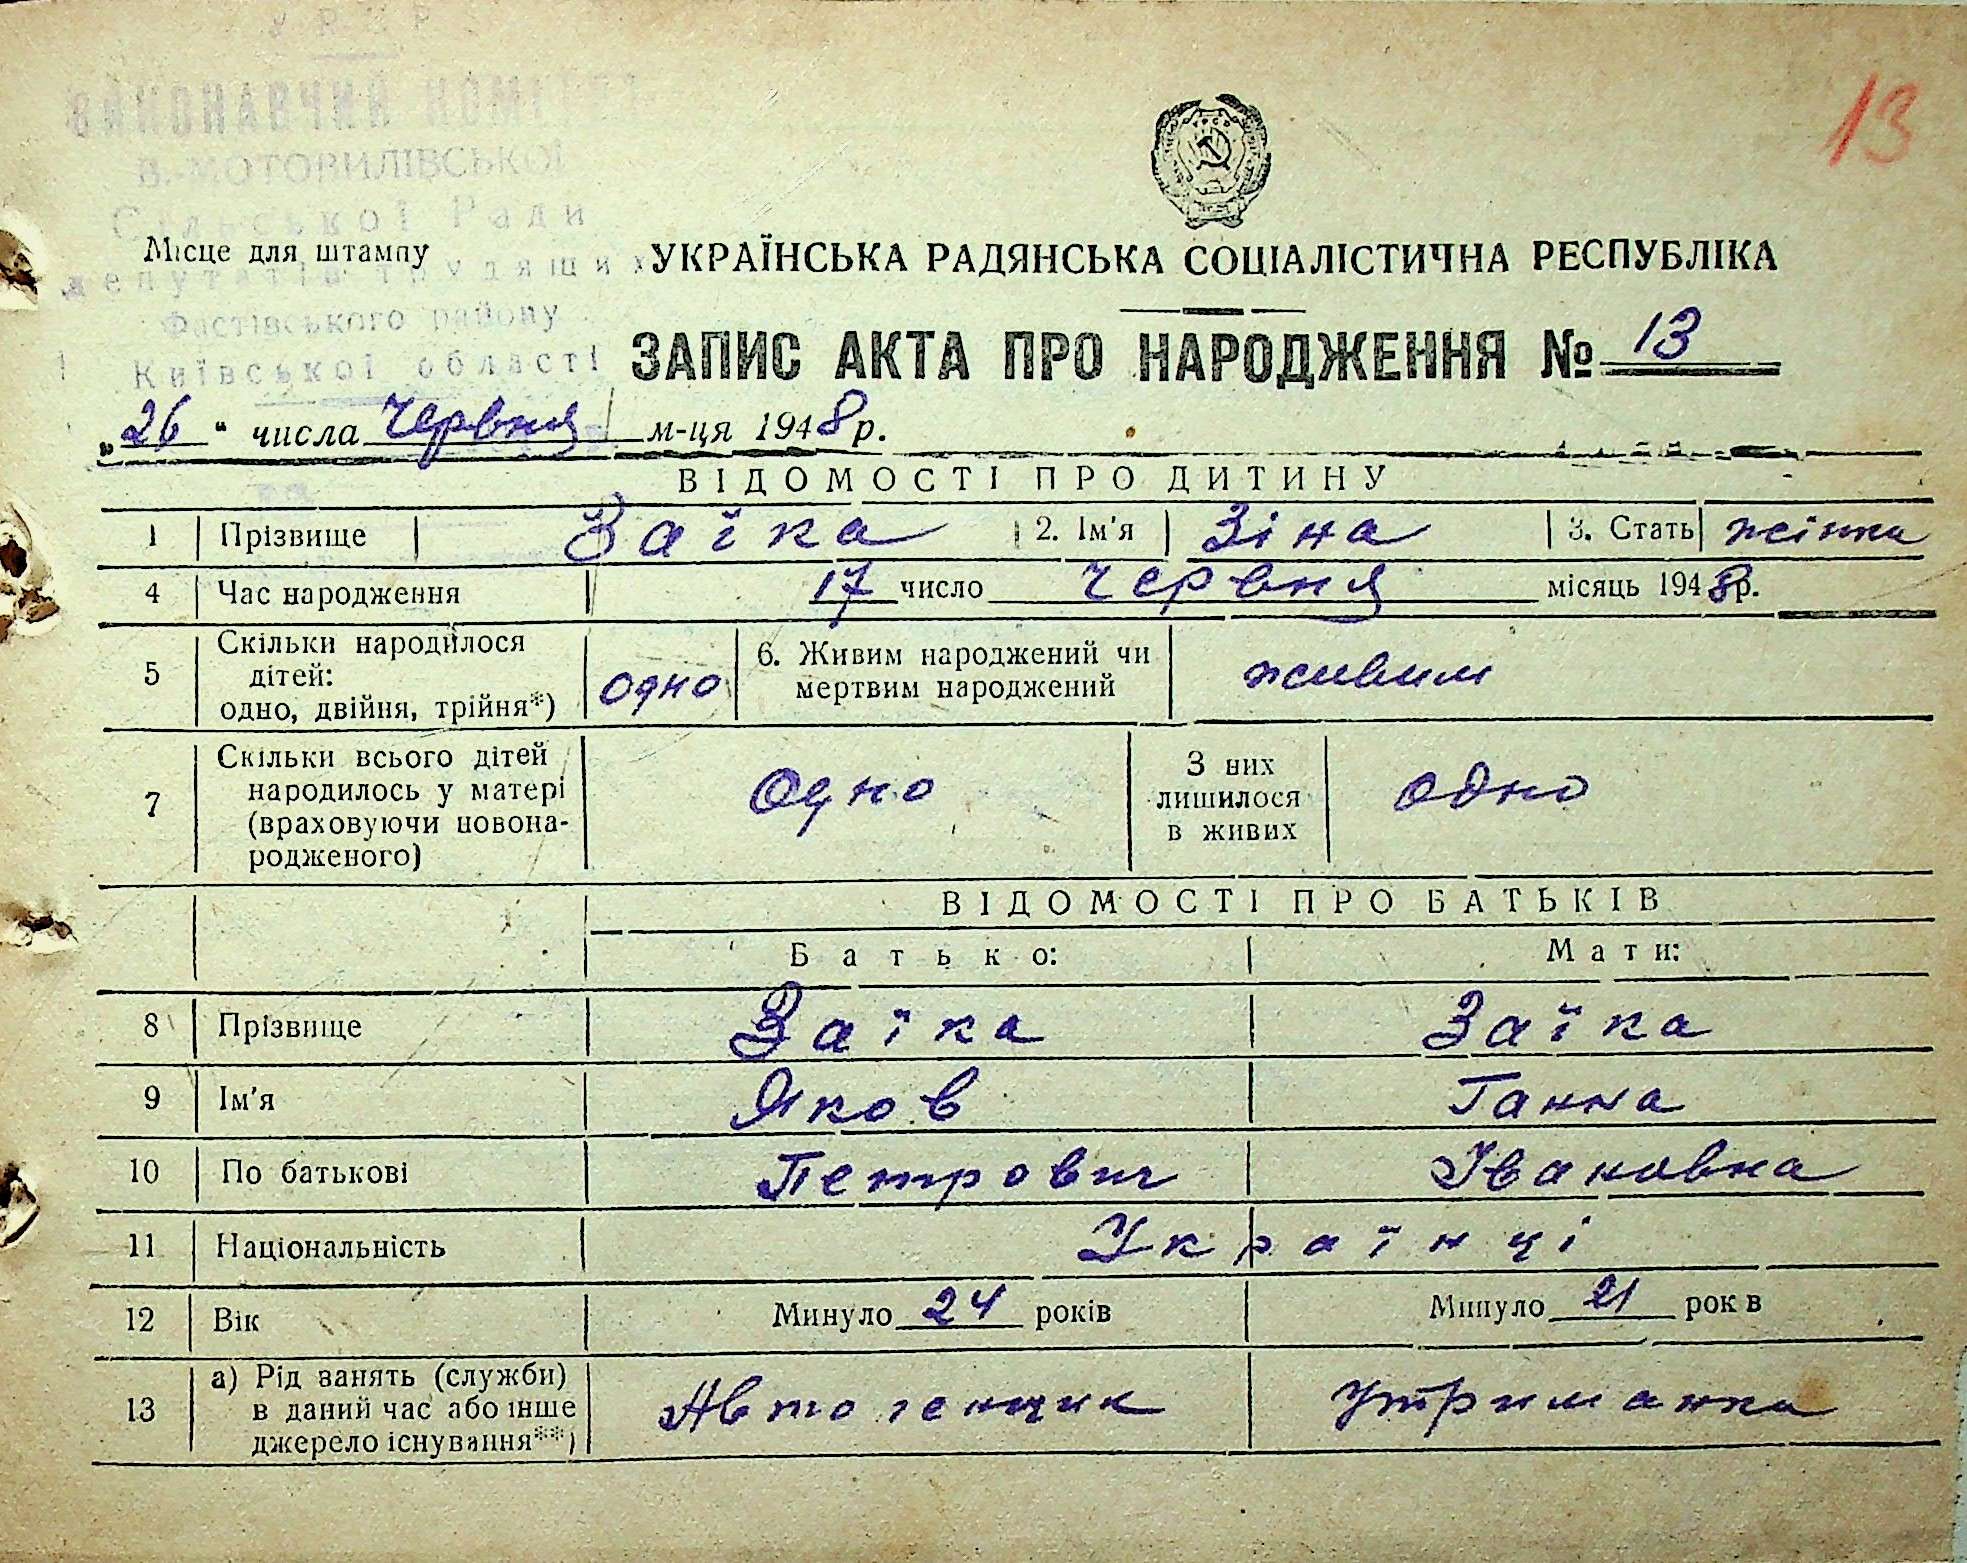 У Р С Р
ВИКОНАВЧИЙ КОМІТЕТ
В.-МОТОВИЛІВСЬКОЇ
Сільської Ради
депутатів трудящих
Фастівського району
Київської області
13
Місце для штампу
УКРАЇНСЬКА РАДЯНСЬКА СОЦІАЛІСТИЧНА РЕСПУБЛІКА
ЗАПИС АКТА ПРО НАРОДЖЕННЯ № 13
„26“ числа Червня м-ця 1948 р.
ВІДОМОСТІ ПРО ДИТИНУ
1 Прізвище Заїка 2. Ім'я Зіна 3. Стать жінка
4 Час народження 17 число Червня місяць 1948 р.
5 Скільки народилося
дітей:
одно, двійня, трійня*) одно
6. Живим народжений чи
мертвим народжений живим
7 Скільки всього дітей
народилось у матері
(враховуючи новона-
родженого) Одно
З них
лишилося
в живих одно
ВІДОМОСТІ ПРО БАТЬКІВ
Батько: Мати:
8 Прізвище Заїка Заїка
9 Ім'я Яков Ганна
10 По батькові Петрович Івановна
11 Національність Українці
12 Вік Минуло 24 років Минуло 21 рок в
13 а) Рід занять (служби)
в даний час або інше
джерело існування**) Автогенщик Утриманка